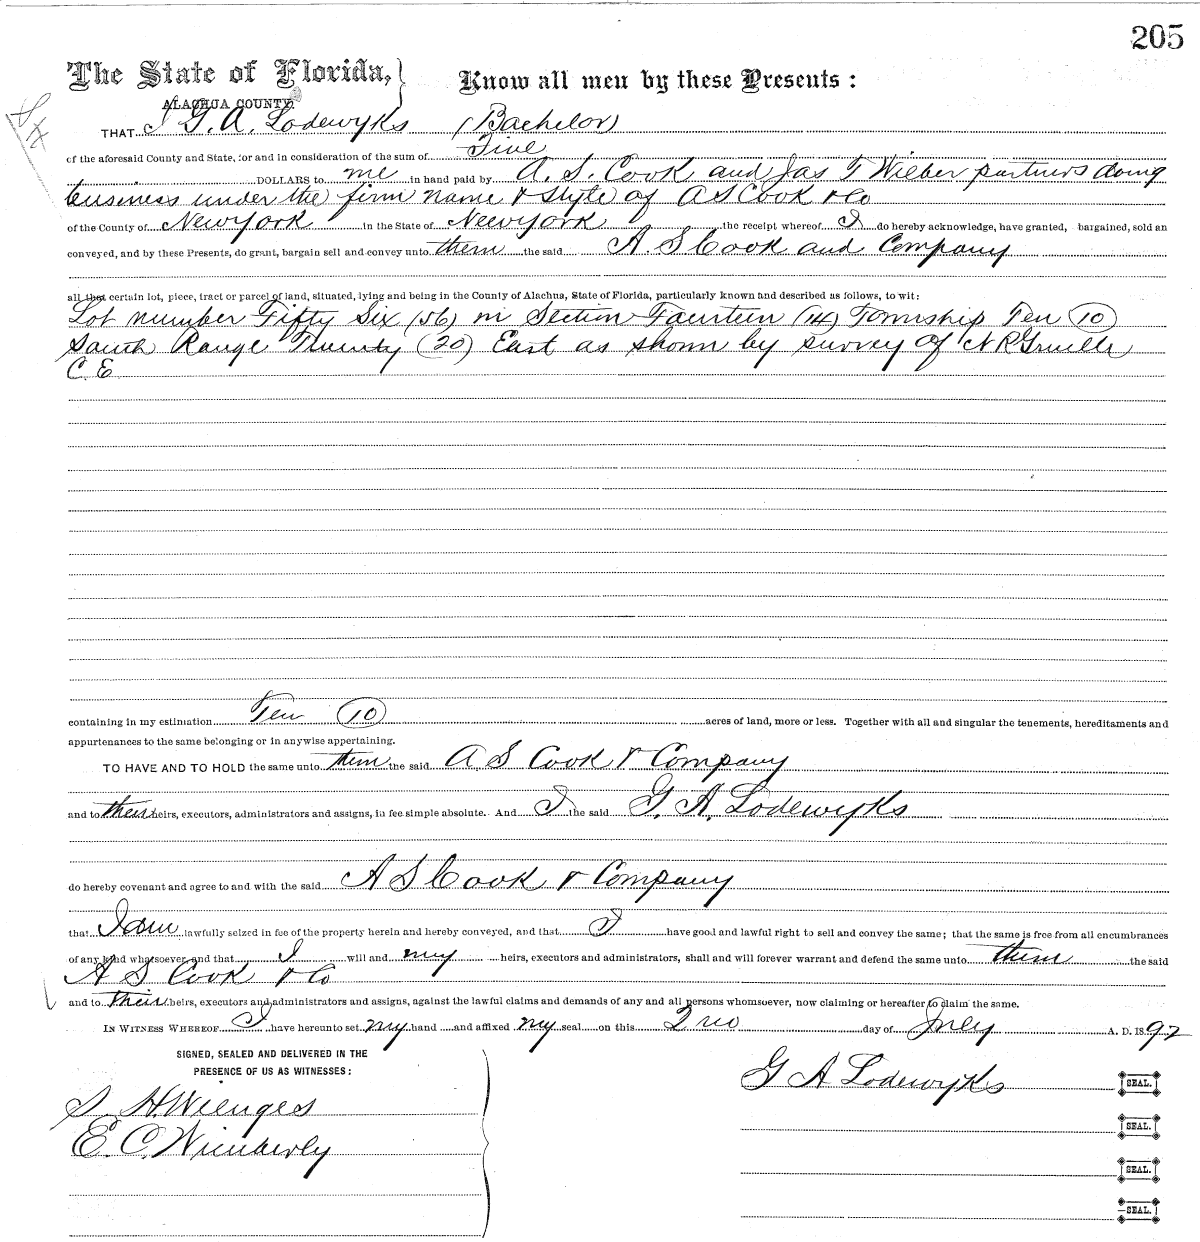 205
The State of Florida, Know all men by these Presents:
ALACHUA COUNTY
THAT I G. A. Lodewyks (Bachelor)
of the aforesaid County and State, for and in consideration of the sum of Five
DOLLARS to me in hand paid by A. S. Cook and Jas T Wieber partners doing
business under the firm name & style of A S Cook & Co
of the County of New York in the State of New York the receipt whereof I do hereby acknowledge, have granted, bargained, sold an
conveyed, and by these Presents, do grant, bargain sell and convey unto them the said A. S Cook and Company
all that certain lot, piece, tract or parcel of land, situated, lying and being in the County of Alachua, State of Florida, particularly known and described as follows, to wit:
Lot number Fifty Six (56) in Section Fourteen (14) Township Ten (10)
South Range Twenty (20) East as shown by survey of N R
C. E
containing in my estimation Ten (10) acres of land, more or less. Together with all and singular the tenements, hereditaments and
appurtenances to the same belonging or in anywise appertaining.
TO HAVE AND TO HOLD the same unto them the said A S Cook & Company
and to their heirs, executors, administrators and assigns, in fee simple absolute. And I the said G. A. Lodewyks
do hereby covenant and agree to and with the said A S Cook & Company
that I am lawfully seized in fee of the property herein and hereby conveyed, and that I have good and lawful right to sell and convey the same; that the same is free from all encumbrances
of any kind whatsoever, and that I will and my heirs, executors and administrators, shall and will forever warrant and defend the same unto them the said
A S Cook & Co
and to their heirs, executors and administrators and assigns, against the lawful claims and demands of any and all persons whomsoever, now claiming or hereafter to claim the same.
IN WITNESS WHEREOF I have hereunto set my hand and affixed my seal on this 2nd day of July A. D. 1892
SIGNED, SEALED AND DELIVERED IN THE
PRESENCE OF US AS WITNESSES:
G A Lodewyks SEAL.
S. H. Wienges
SEAL.
E. C. Wimberly
SEAL.
SEAL.